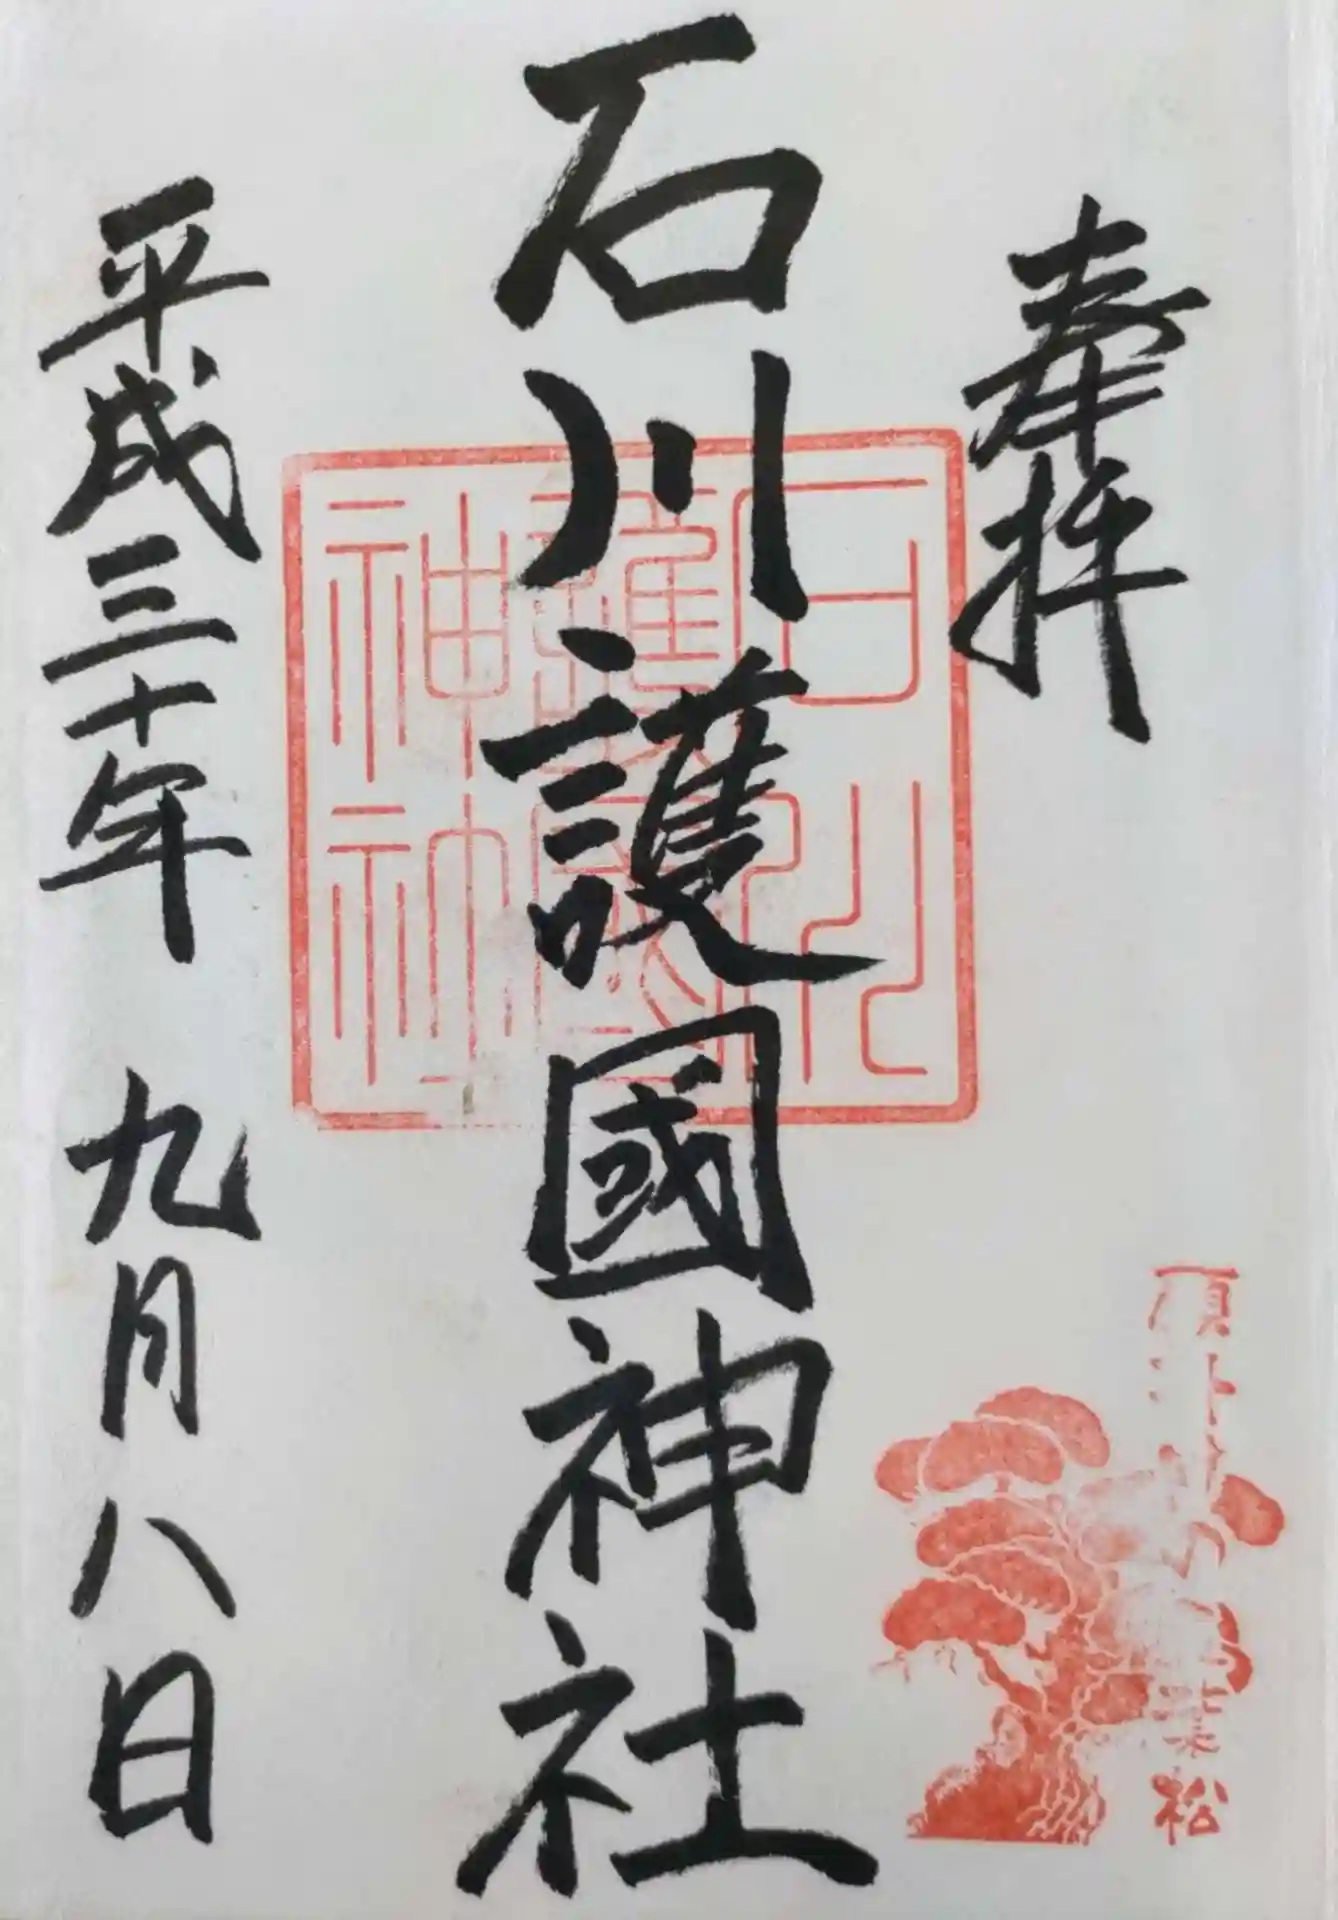 奉拝
石川護國神社
石川護國神社
平成三十年 九月八日
願かけ五葉松